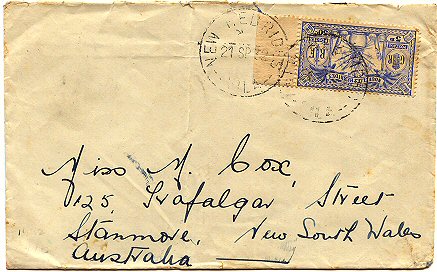 NEW HEBRIDES
21 SP
VILA
Miss M. Cox
125, Trafalgar Street
Stanmore, New South Wales
Australia